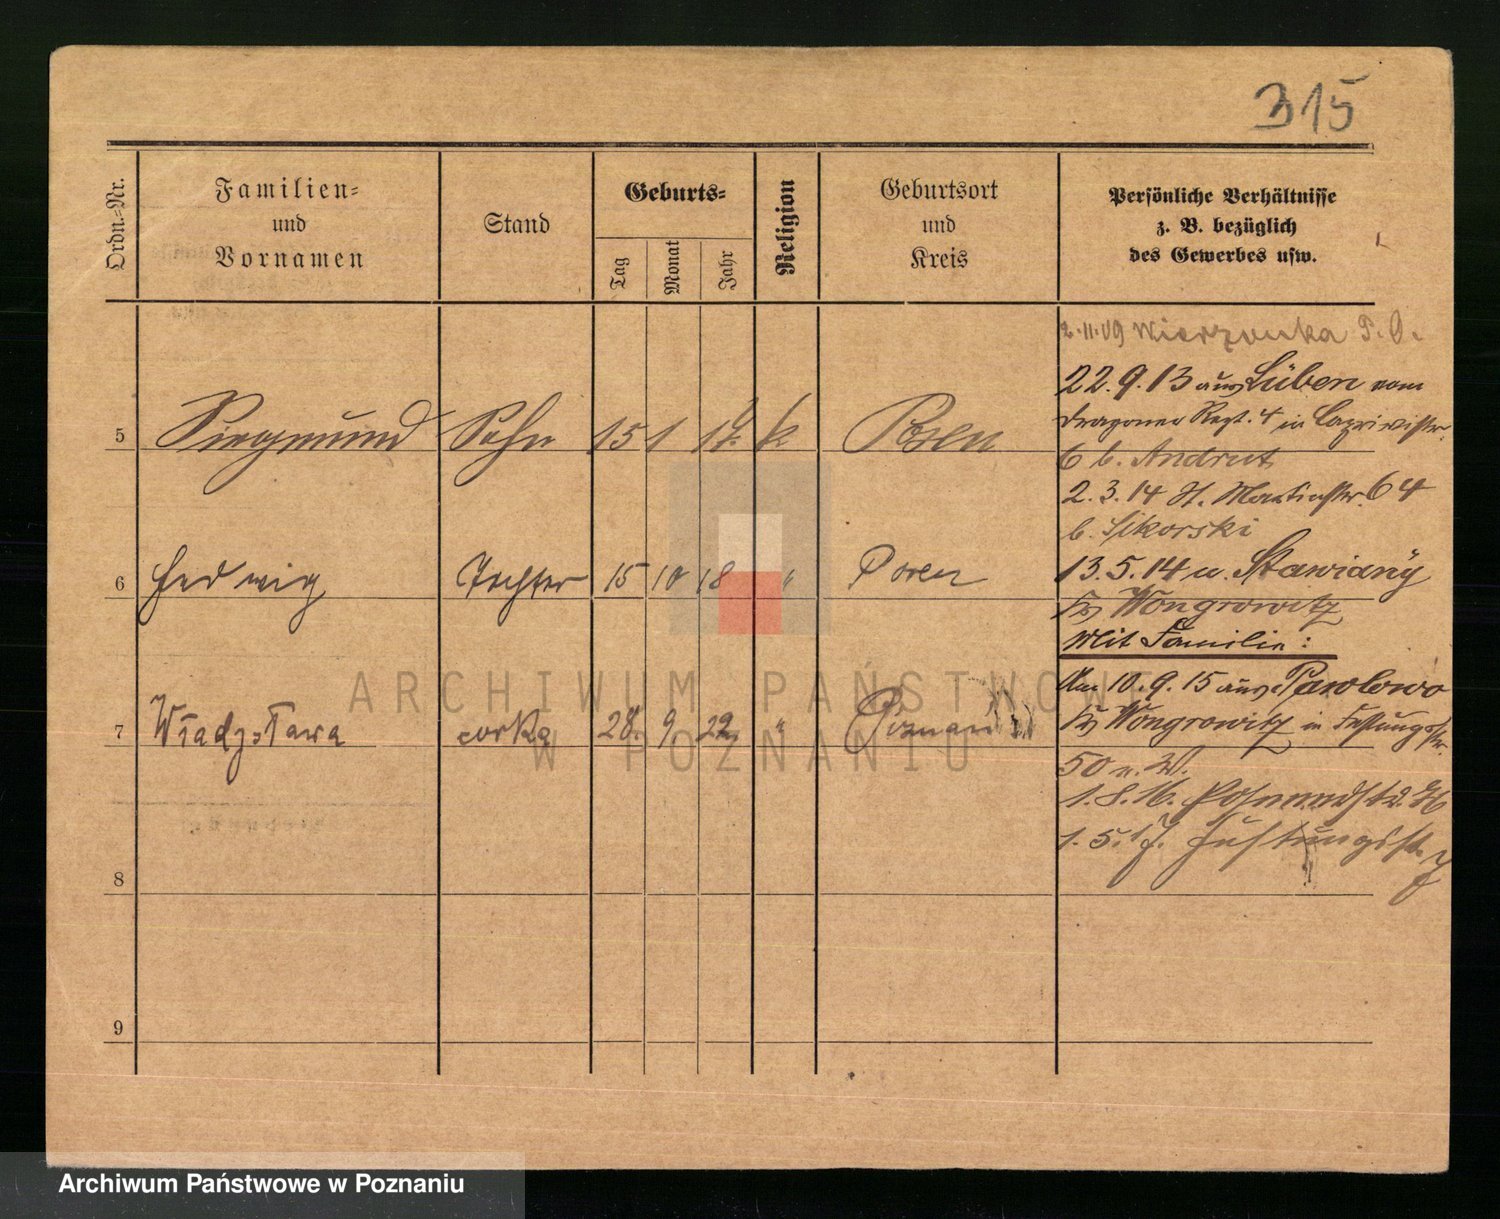 315
Ordn.-Nr.
Familien-
und
Vornamen
Stand
Geburts-
Tag
Monat
Jahr
Religion
Geburtsort
und
Kreis
Persönliche Verhältnisse
z. B. bezüglich
des Gewerbes usw.
2.11.09 Wierzonka P. O.
22.9.13 aus Lüben vom
Dragoner Regt. 4 in
5 Siegmund Sohn 15 1 17. k Posen
6 b. Andrut
2.3.14 St. Martinstr. 64
b. Sikorski
6 Hedwig Tochter 15 10 18 " Posen
13.5.14 n. Stawiany
Kr Wongrowitz
Mit Familie:
Am 10.9.15 aus Pawlowo
7 Władysława córka 28. 9 22 " Poznań
Kr Wongrowitz in Festungsstr.
50 n. W.
1.8.16.
1.5.17. Festungsstr. 7
8
9
ARCHIWUM PAŃSTWOWE
W POZNANIU
Archiwum Państwowe w Poznaniu